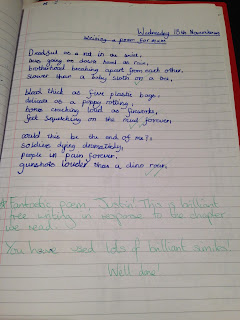 Wednesday 13th November
Writing a poem for mum
Deadful as a rat in the
guns going on down hard as rain,
brotherhood breaking apart from each other,
slower than a baby sloth on a tree,
blood thick as five plastic bags,
delicate as a poppy rotting,
bombs crunching loud as fireworks,
feet squelching on the mud forever
could this be the end of me?
soldiers dying dramatically,
people in pain forever.
gunshots louder than a dino roar.
Fantastic poem, Justin! This is brilliant
free writing in response to the chapter
we read.
You have used lots of brilliant similes!
Well done!